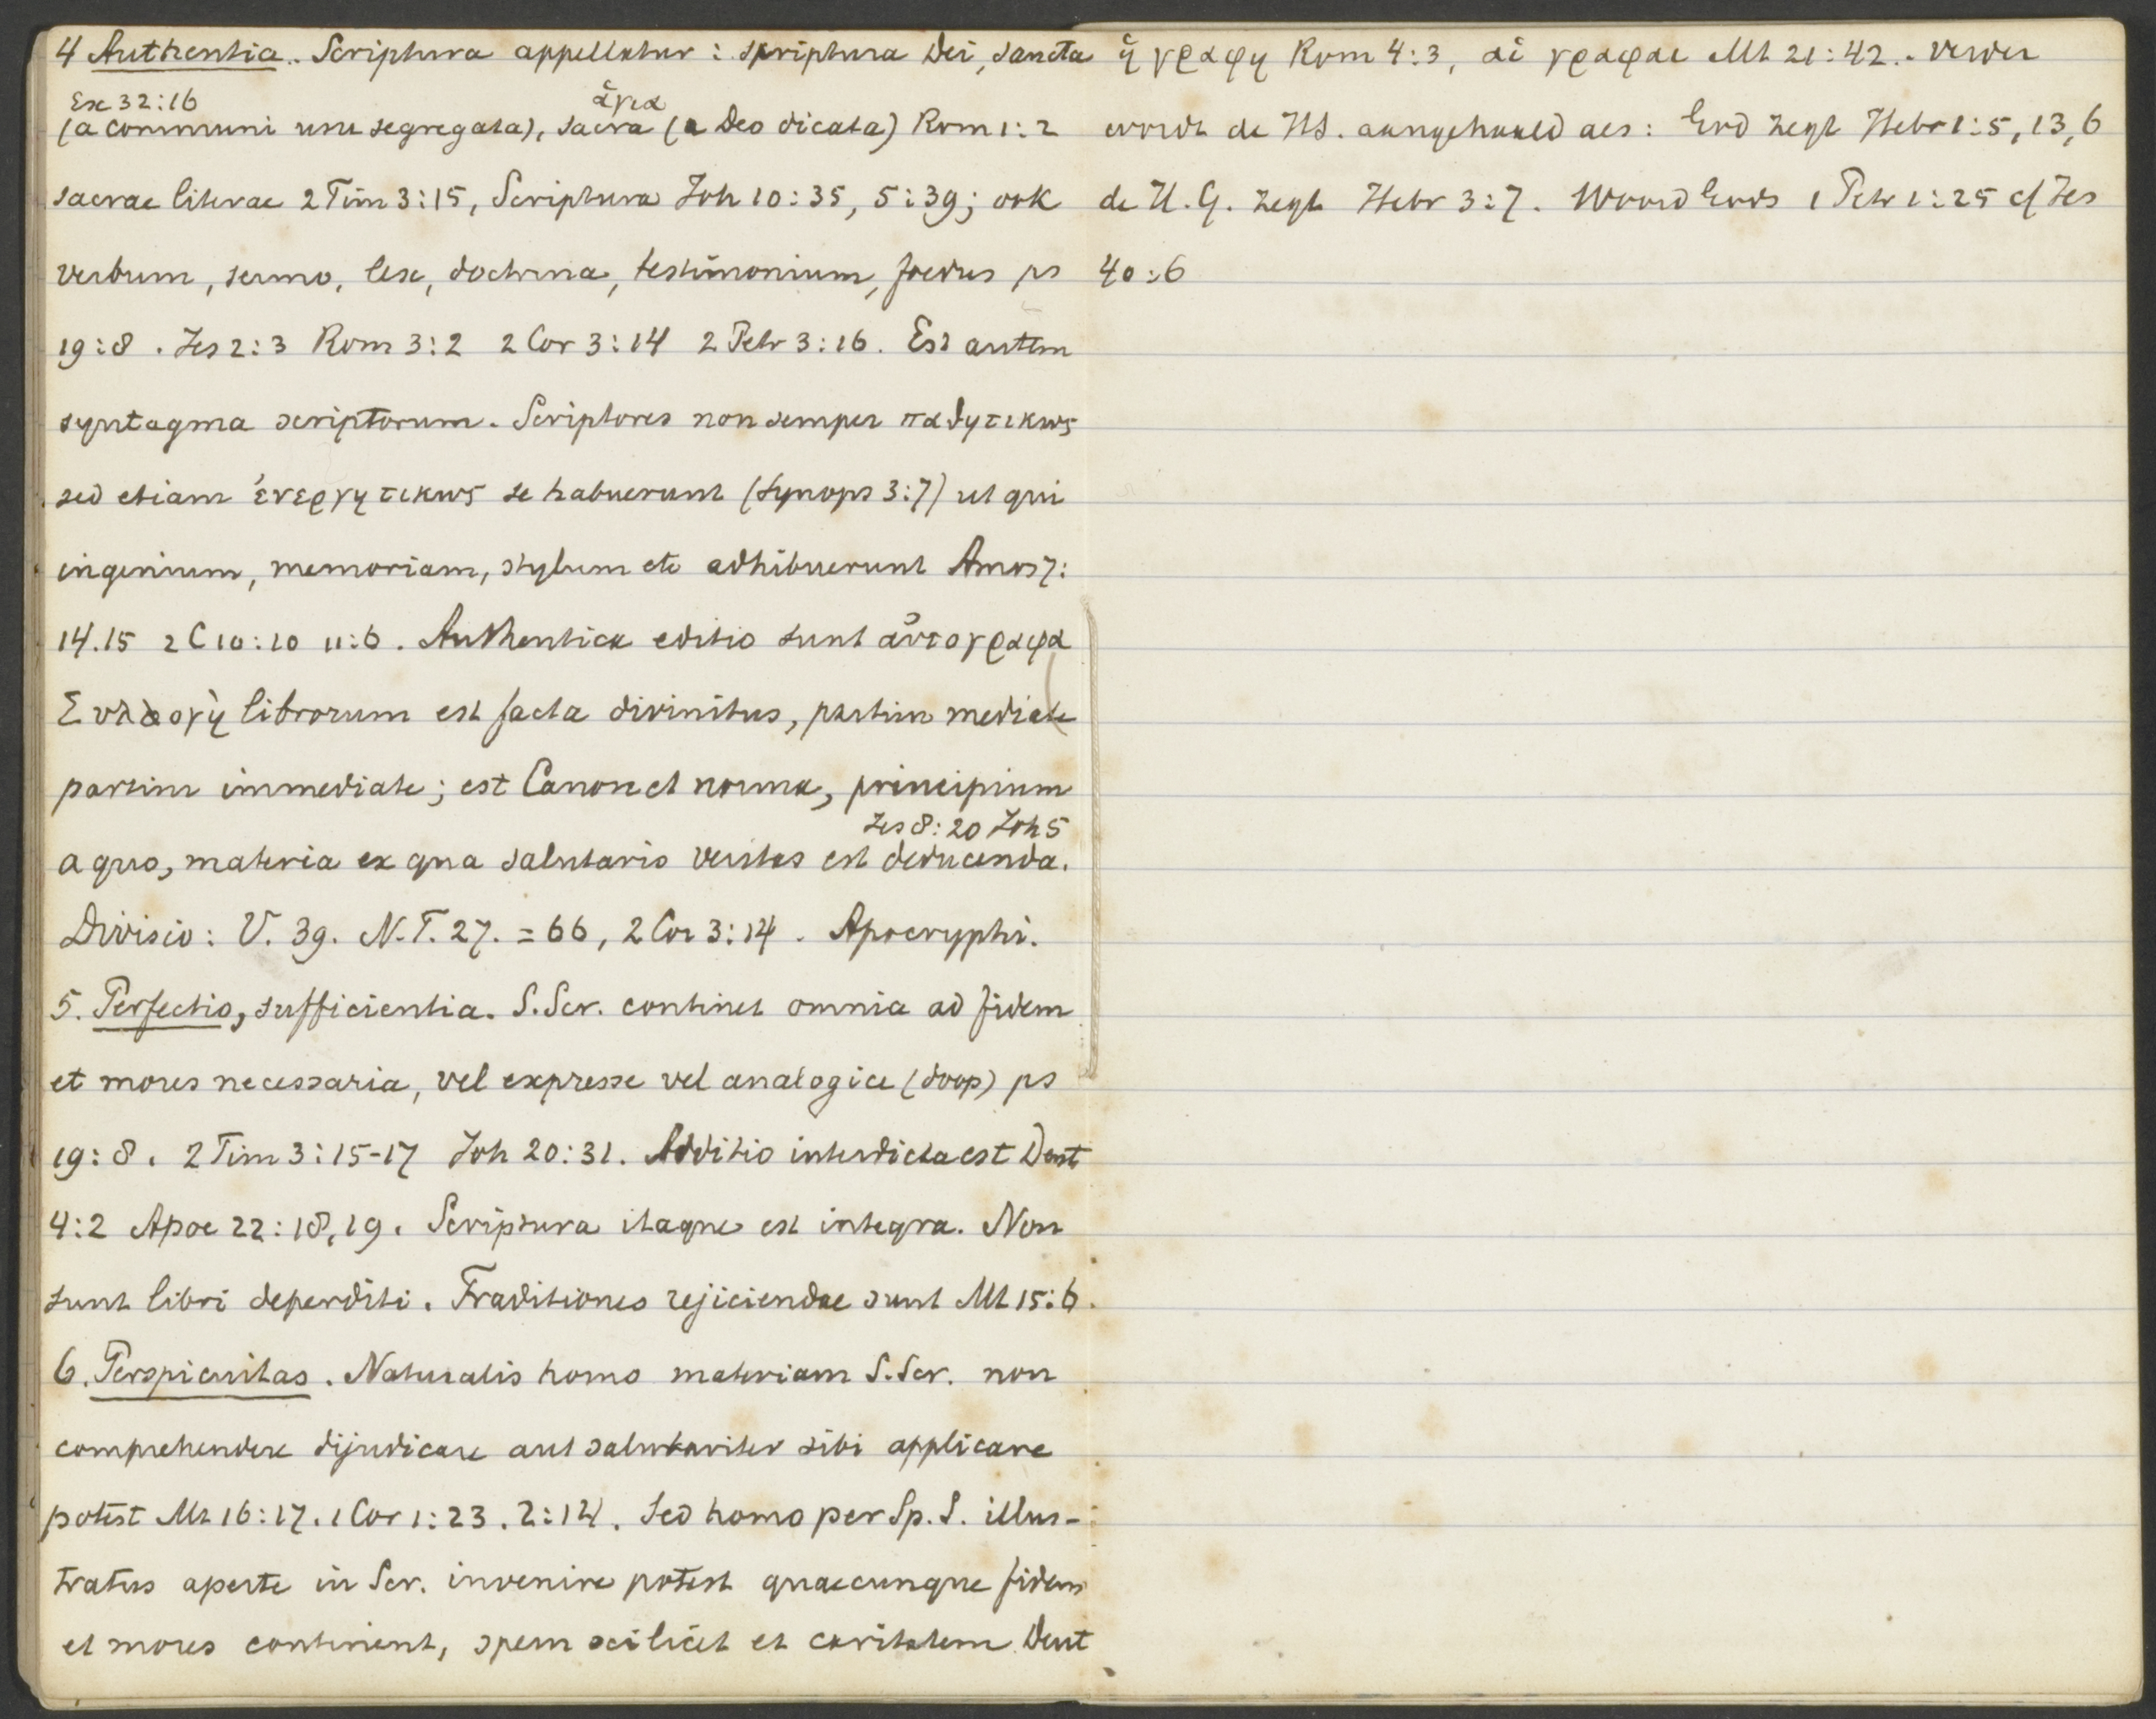 4 Authentia. Scriptura appellatur: scriptura Dei, sancta
Ex 32:16 ἅγια
(a communi usu segregata), sacra (a Deo dicata) Rom 1:2
sacrae literae 2 Tim 3:15, Scriptura Joh 10:35, 5:39; ook
verbum, sermo, lex, doctrina, testimonium, foedus ps
19:8. Jes 2:3 Rom 3:2 2 Cor 3:14 2 Petr 3:16. Est autem
syntagma scriptorum. Scriptores non semper παθητικως
sed etiam ἐνεργητικως se habuerunt (Synops 3:7) ut qui
ingenium, memoriam, stylum etc adhibuerunt Amos 7:
14.15 2 C 10:10 11:6. Authentica editio sunt αὐτογραφα
Συλλογὴ librorum est facta divinitus, partim mediate
partim immediate; est Canon et norma, principium
Jes 8:20 Joh 5
a quo, materia ex qua salutaris veritas est deducenda.
Divisio: V. 39. N.T. 27. = 66, 2 Cor 3:14. Apocryphi.
5. Perfectio, sufficientia. S. Scr. continet omnia ad fidem
et mores necessaria, vel expresse vel analogice (doop) ps
19:8. 2 Tim 3:15-17 Joh 20:31. Additio interdicta est Deut
4:2 Apoc 22:18,19. Scriptura itaque est integra. Non
sunt libri deperditi. Traditiones rejiciendae sunt Mt 15:6.
6. Perspicuitas. Naturalis homo materiam S. Scr. non
comprehendere dijudicare aut salutariter sibi applicare
potest Mt 16:17. 1 Cor 1:23. 2:14. Sed homo per Sp. S. illus-
tratus aperte in Scr. invenire potest quaecunque fidem
et mores continent, spem scilicet et caritatem Deut
ἡ γραφη Rom 4:3, αἱ γραφαι Mt 21:42. Verder
wordt de HS. aangehaald als: God zegt Hebr 1:5, 13, 6
de H. G. zegt Hebr 3:7. Woord Gods 1 Petr 1:25 cf Jes
40:6